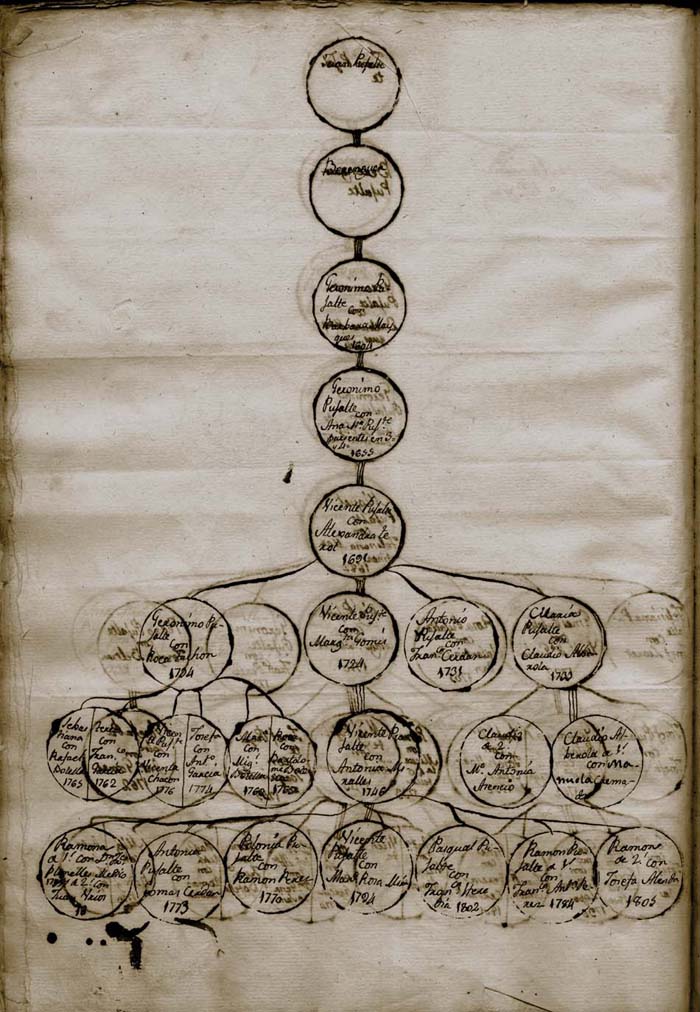 Juan Pujalte
Berenguer
Pujalte
Geronimo Pu-
jalte
con
Barbara Mai
ques
1604
Geronimo
Pujalte
con
Ana Mª. Pujte
parientes en 3º
y 4º
1655
Vicente Pujalte
con
Alexandra Te
rol
1691
Geronimo Pu-
jalte
con
Roca
1704
Vicente Pujte
con
Margta Gomis
1724
Antonio
Pujalte
con
Franca Cerdan
1731
Maria
Pujalte
con
Claudio Albe
rola
1733
Sebas
tiana
con
Rafael
Botella
1765
con
Fran.co
Garcia
1762
Vicen
te Pujte
con
Vicenta
Chacon
1776
Josefa
con
Anto.
Garcia
1774
Mara
con
Migl
Botella
1760
con
Bartolo
me
1765
Vicente Pu
jalte
con
Antonia Mi
ralles
1746
Claudio
de 2º
con
Mª. Antonia
Asencio
Claudio Al
berola de 1º.
con Ma
nuela Crema-
des
Ramona
de 1º. con
de 2º. con
Antonia
Pujalte
con
Tomas Cerdan
1773
Colonia Pu
jalte
con
Ramon Perez
1770
Vicente
Pujalte
con
Maria Rosa Mira
1794
Pasqual Pu-
jalte
con
Franca
1802
Ramon Pu
jalte de 1º
con
Franca Anta Pe
rez 1784
Ramon
de 2º. con
Josefa Alenda
1805